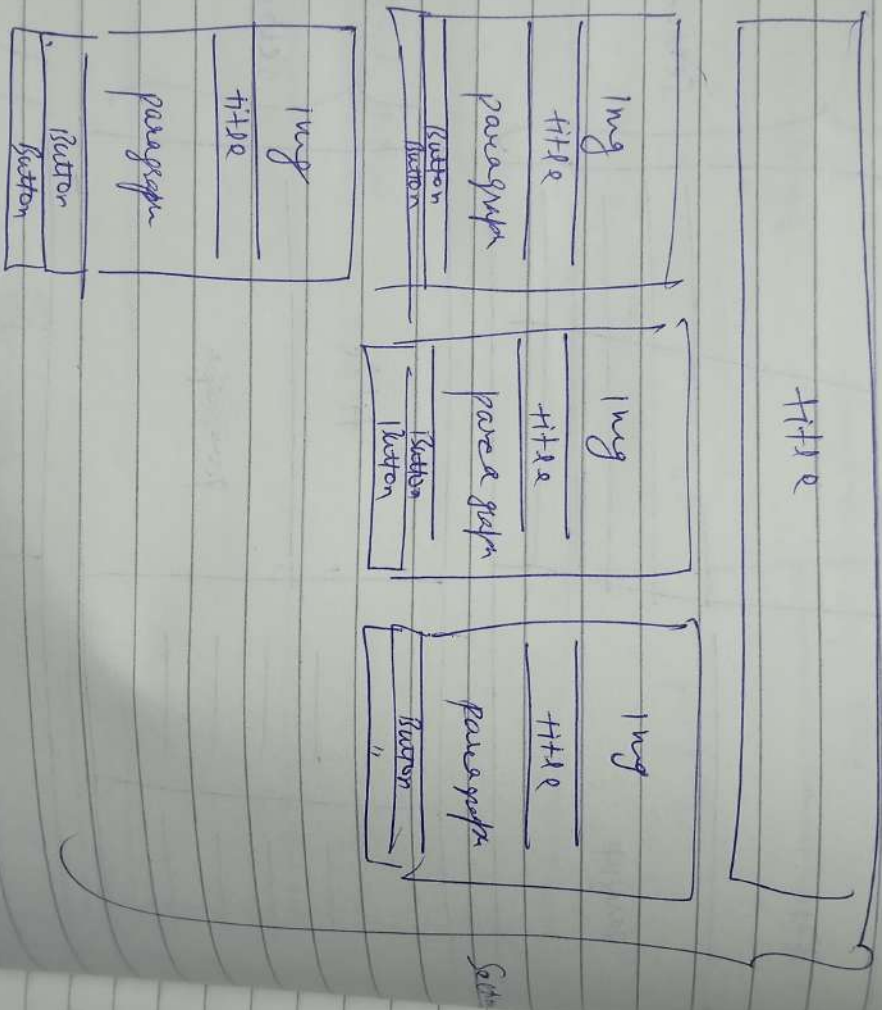 title
Img
title
paragraph
Button
Button
Img
title
paragraph
Button
Button
Img
title
paragraph
Button
"
Img
title
paragraph
Button
Button